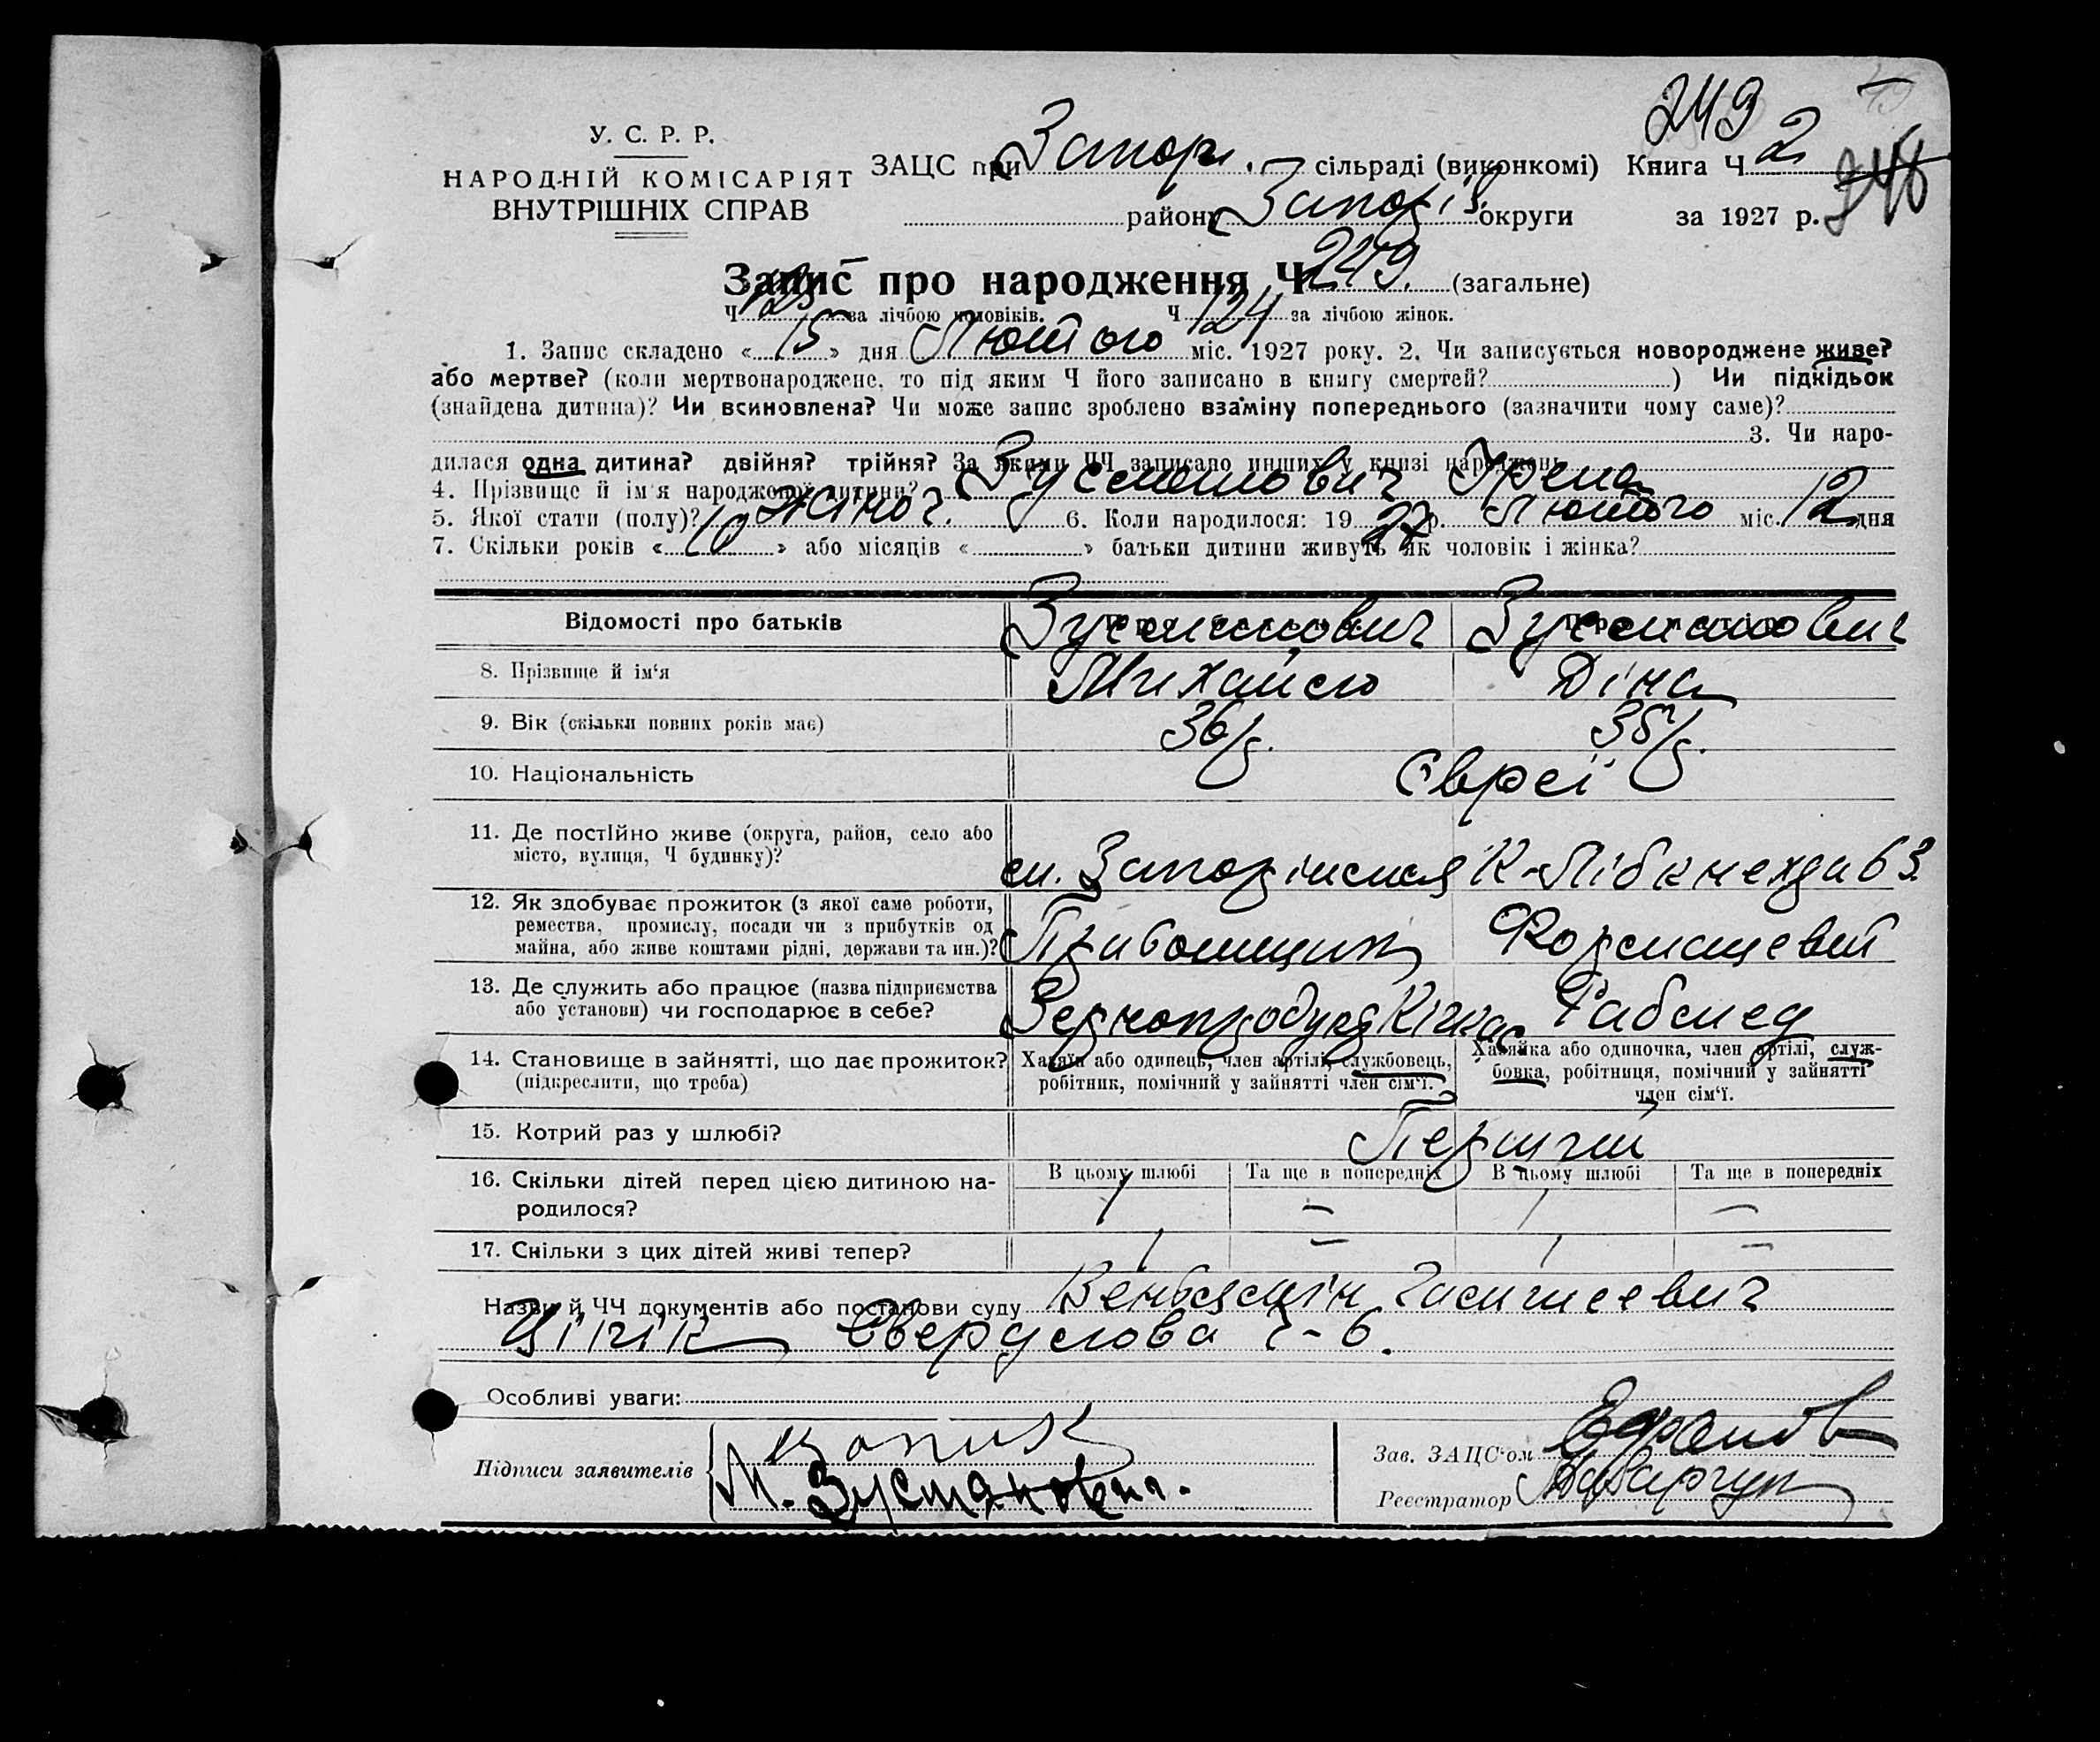 249
У. С. Р. Р.
НАРОДНІЙ КОМІСАРІЯТ
ВНУТРІШНІХ СПРАВ
ЗАЦС при Запор. сільраді (виконкомі) Книга Ч 2
району Запоріз округи за 1927 р. 248
Запис про народження Ч 249. (загальне)
Ч 125 за лічбою чоловіків. Ч 124 за лічбою жінок.
1. Запис складено « 15 » дня Лютого міс. 1927 року. 2. Чи записується новороджене живе?
або мертве? (коли мертвонароджене, то під яким Ч його записано в книгу смертей? ) Чи підкідьок
(знайдена дитина)? Чи всиновлена? Чи може запис зроблено взаміну попереднього (зазначити чому саме)?
3. Чи наро-
дилася одна дитина? двійня? трійня? За якими ЧЧ записано инших у книзі народжень
4. Прізвище й ім'я народженої дитини? Зусманович Ірена
5. Якої стати (полу)? жіноч. 6. Коли народилося: 1927 р. Лютого міс. 12 дня
7. Скільки років « 10 » або місяців « » батьки дитини живуть як чоловік і жінка?
Відомості про батьків Зусманович Зусманович
8. Прізвище й ім'я Михайло Діна
9. Вік (скільки повних років має) 36 р. 35 р.
10. Національність Євреї
11. Де постійно живе (округа, район, село або
місто, вулиця, Ч будинку)? м. Запоріжжя К-Лібкнехта 63
12. Як здобуває прожиток (з якої саме роботи,
ремества, промислу, посади чи з прибутків од
майна, або живе коштами рідні, держави та ин.)?
13. Де служить або працює (назва підприємства
або установи) чи господарює в себе? Зернопродукт Кічкас Рабмед
14. Становище в зайнятті, що дає прожиток? Хазяїн або одинець, член артілі, службовець, Хазяйка або одиночка, член артілі, служ-
(підкреслити, що треба) робітник, помічний у зайнятті член сім'ї. бовка, робітниця, помічний у зайнятті
член сім'ї.
15. Котрий раз у шлюбі? Перший
16. Скільки дітей перед цією дитиною на- В цьому шлюбі Та ще в попередніх В цьому шлюбі Та ще в попередніх
родилося? 1 — 1 —
17. Скільки з цих дітей живі тепер? 1 — 1 —
Назви й ЧЧ документів або постанови суду Веньямін
Свердлова 6.
Особливі уваги:
Підписи заявителів
М. Зусманович.
Зав. ЗАЦС'ом
Реєстратор